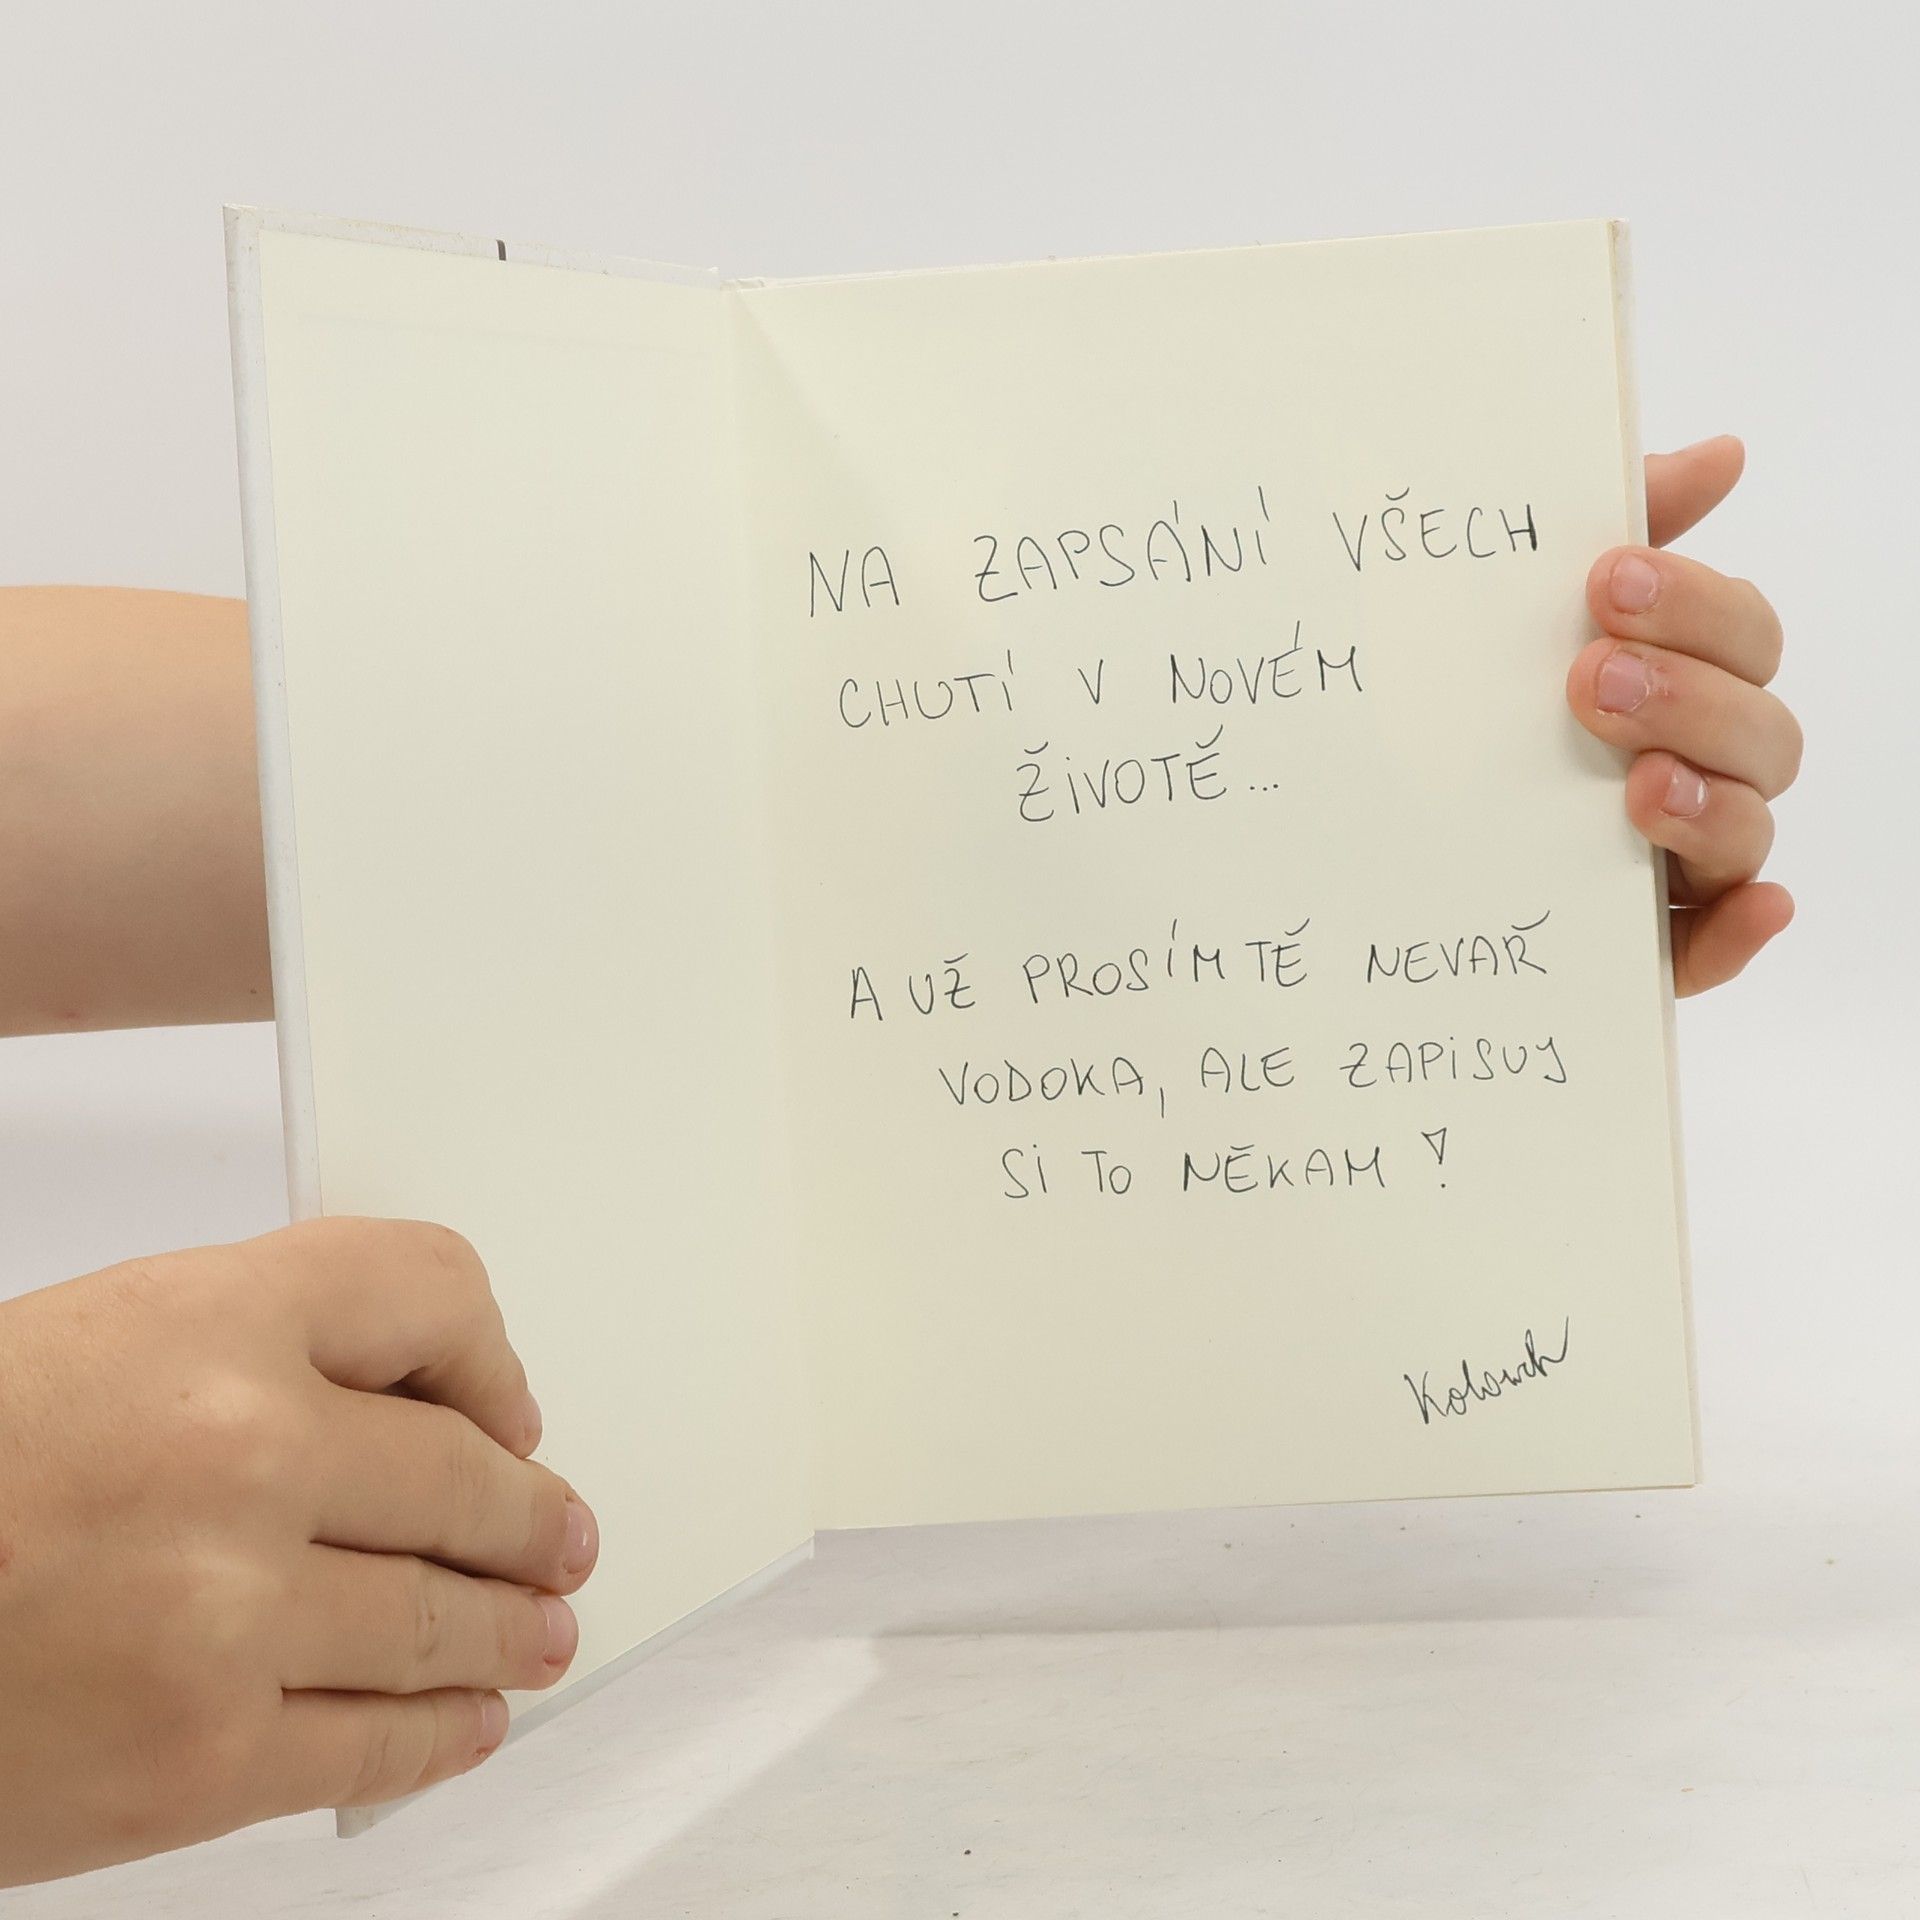 NA ZAPSÁNÍ VŠECH
CHUTÍ V NOVÉM
ŽIVOTĚ...
A UŽ PROSÍM TĚ NEVAŘ
VODOKA, ALE ZAPISUJ
SI TO NĚKAM!